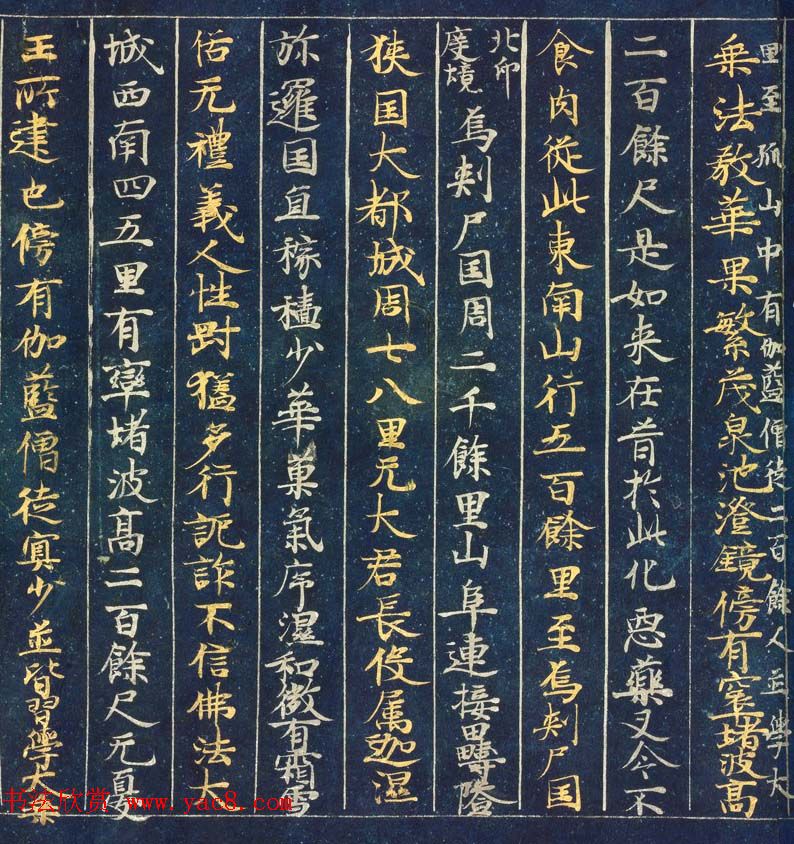 里至孤山中有伽藍僧徒二百餘人並學大
乗法教華果繁茂泉池澄鏡傍有窣堵波高
二百餘尺是如来在昔於此化惡藥叉令不
食肉從此東南山行五百餘里至烏剌尸国
北印度境
烏剌尸国周二千餘里山阜連接田疇隘
狹国大都城周七八里无大君長伇属迦濕
弥邏国宜稼穡少華菓氣序温和微有霜雪
俗无禮義人性剛猛多行詭詐不信佛法大
城西南四五里有窣堵波髙二百餘尺无憂
王所建也傍有伽藍僧徒寡少並皆習學大乗
书法欣赏 www.yac8.com